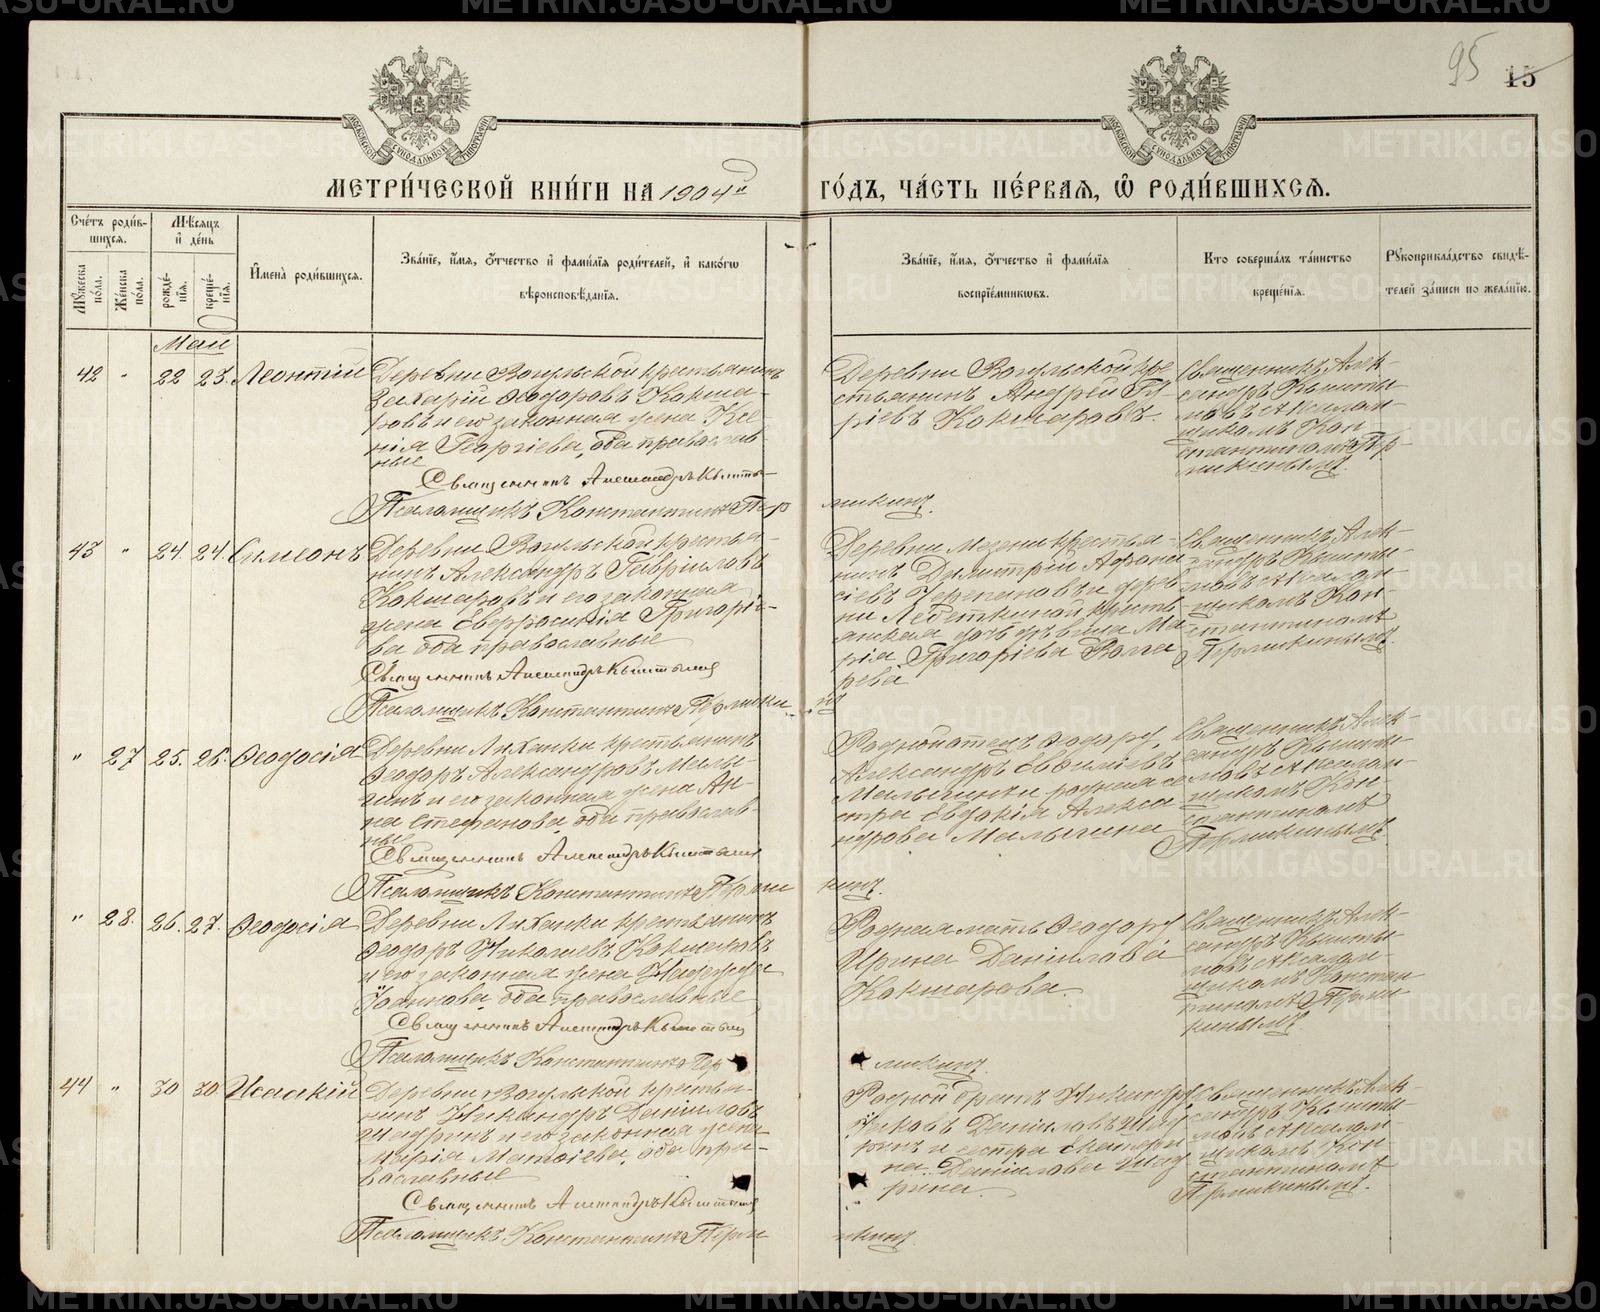 95 15
МОСКОВСКОЙ СѴНОДАЛЬНОЙ ТИПОГРАФІИ
МОСКОВСКОЙ СѴНОДАЛЬНОЙ ТИПОГРАФІИ
МЕТРИ́ЧЕСКОЙ КНИ́ГИ НА 1904й ГО́ДЪ, ЧА́СТЬ ПЕ́РВАЯ, Ѡ҆ РОДИ́ВШИХСѦ.
Сче́тъ роди́в-
шихсѧ.
Мѣ́сѧцъ
и҆ де́нь
Мꙋ́жеска
по́ла.
Же́нска
по́ла.
рожде́-
нїѧ.
креще́-
нїѧ.
И҆мена̀ роди́вшихсѧ.
Зва́нїе, и҆́мѧ, ѻ҆́тчество и҆ фами́лїѧ роди́телей, и҆ како́гѡ
вѣроисповѣ́данїѧ.
Зва́нїе, и҆́мѧ, ѻ҆́тчество и҆ фами́лїѧ
воспрїе́мникѡвъ.
Кто соверша́лъ та́инство
креще́нїѧ.
Рꙋкоприкла́дство свидѣ́-
телей за́писи по жела́нїю.
Май
42 " 22 23. Леонтій
Деревни Вогульской крестьянинъ
Захарій Ѳеодоровъ Кокша-
ровъ и его законная жена Ксе-
нія Георгіева, оба православ-
ные
Священникъ Александръ Кышты-
Псаломщикъ Константинъ Пер
ликинъ.
Деревни Вогульской кре
стьянинъ Андрей Гі
ріевъ Кокшаровъ.
Священникъ Алек-
сандръ Кышты-
мовъ съ псалом-
щикомъ Кон-
стантиномъ Пер-
ликинымъ.
43 " 24. 24. Симеонъ
Деревни Вогульской крестья-
нинъ Александръ Гавріиловъ
Кокшаровъ и его законная
жена Евфросинія Григоріе-
ва оба православные
Священникъ Александръ Кыштымовъ
Псаломщикъ Константинъ Перлики
нъ
Деревни Мезени крестья-
нинъ Димитрій Афана
сіевъ Черепановъ и дерев
ни Лебеткиной кресть
янская дочь дѣвица Ма
рія Григоріева Вога
рева
Священникъ Алек-
сандръ Кышты-
мовъ съ псалом-
щикомъ Кон-
стантиномъ
Перликинымъ.
" 27 25. 26. Ѳеодосія
Деревни Ляханки крестьянинъ
Ѳеодоръ Александровъ Малы-
гинъ и его законная жена Ан-
на Стефанова, оба православ-
ные
Священникъ Александръ Кыштымовъ
Псаломщикъ Константинъ Перли
кинъ.
Родной отецъ Ѳеодору
Александръ Евфиміевъ
Малыгинъ и родная се
стра Евдокія Алекса
ндрова Малыгина
Священникъ Алек-
сандръ Кышты-
мовъ съ псалом-
щикомъ Кон-
стантиномъ
Перликинымъ.
" 28. 26. 27. Ѳеодосія
Деревни Ляханки крестьянинъ
Ѳеодоръ Николаевъ Кокшаровъ
и его законная жена Надежда
Іоаннова, оба православные
Священникъ Александръ Кыштым
Псаломщикъ Константинъ Пер
ликинъ.
Родная мать Ѳеодору
Ирина Даніилова
Кокшарова.
Священникъ Алек-
сандръ Кышты-
мовъ съ псалом-
щикомъ Констан
тиномъ Перли
кинымъ
44 " 30 30 Исаакій
Деревни Вогульской крестья-
нинъ Никандръ Даніиловъ
Шадринъ и его законная жена
Марія Матѳіева, оба пра-
вославные
Священникъ Александръ Кыштымов
Псаломщикъ Константинъ Перли
икинъ
Родной братъ Никандру
Іаковъ Даніиловъ Шад
ринъ и сестра Екатери
на Даніилова Шад
рина.
Священникъ Алек-
сандръ Кышты-
мовъ съ псалом-
щикомъ Кон-
стантиномъ
Перликинымъ.
METRIKI.GASO-URAL.RU